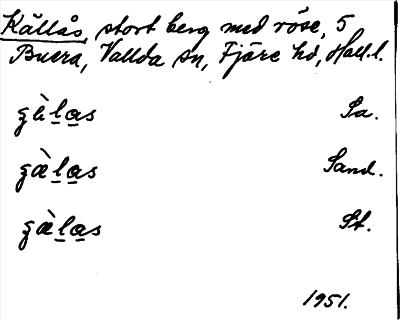 Källås, stort berg med röse, 5
Buera, Vallda sn, Fjäre hd, Hall.l.
Sa.
Sand.
St.
1951.